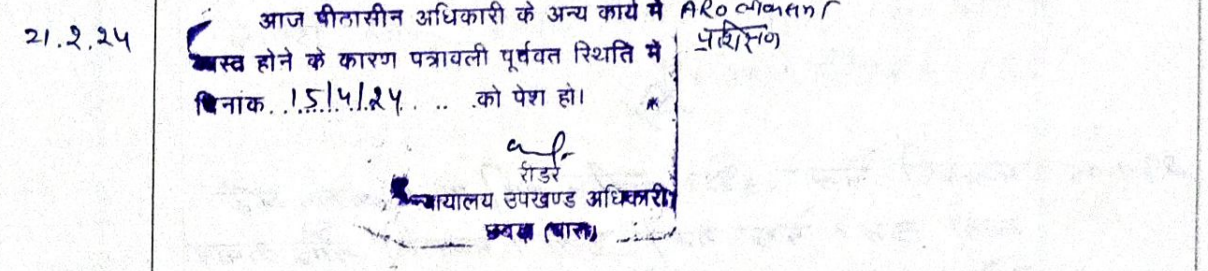 21.2.24
आज पीठासीन अधिकारी के अन्य कार्य में ARO लोकसभा
व्यस्त होने के कारण पत्रावली पूर्ववत स्थिति में प्रशिक्षण
दिनांक. 15/4/24 .. .को पेश हो।
रीडर
न्यायालय उपखण्ड अधिकारी